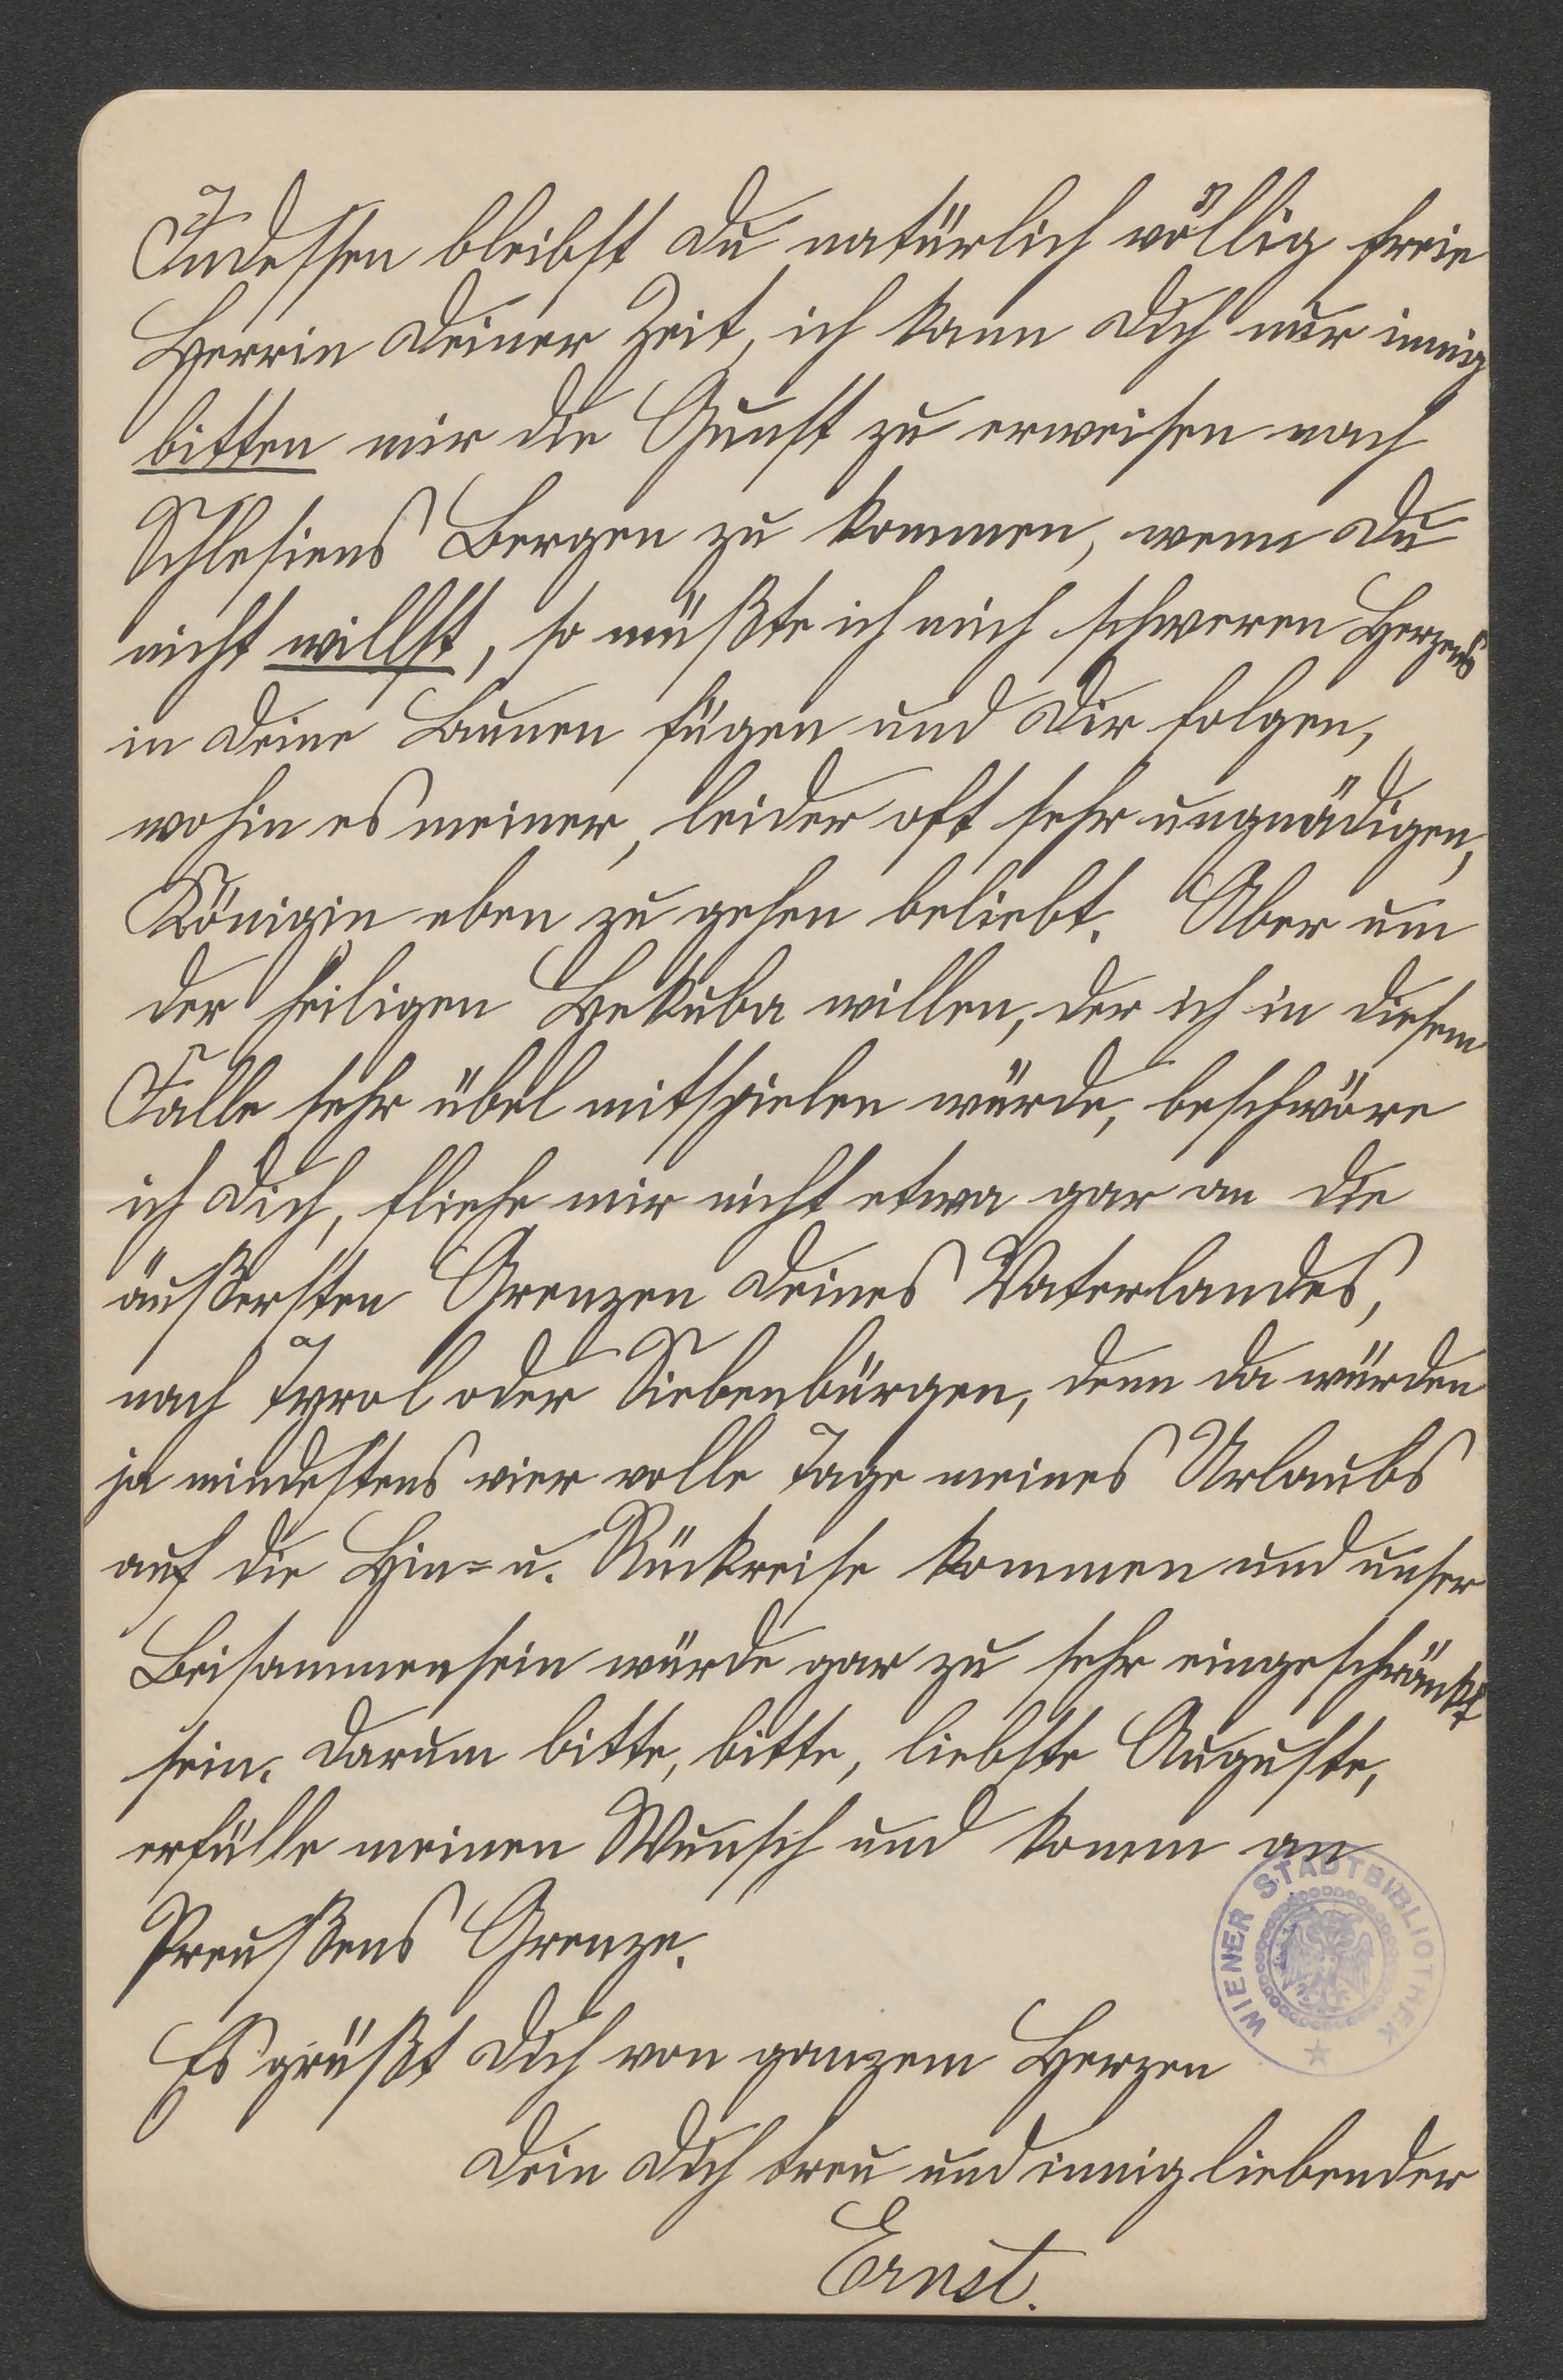 Indessen bleibst Du natürlich völlig freie
Herrin Deiner Zeit, ich kann Dich nur innig
bitten mir die Gunst zu erweisen nach
Schlesiens Bergen zu kommen, wenn Du
nicht willst, so müßte ich mich schweren Herzens
in Deine Launen fügen und Dir folgen,
wohin es meiner, leider oft sehr ungnädigen,
Königin eben zu gehen beliebt. Aber um
der heiligen Hekuba willen, der ich in diesem
Falle sehr übel mitspielen würde, beschwöre
ich Dich, fliehe mir nicht etwa gar an die
äußersten Grenzen Deines Vaterlandes,
nach Tyrol oder Siebenbürgen, denn da würden
ja mindestens vier volle Tage meines Urlaubs
auf die Hin- u. Rückreise kommen und unser
Beisammensein würde gar zu sehr eingeschränkt
sein. Darum bitte, bitte, liebste Auguste,
erfülle meinen Wunsch und komm an
Preußens Grenze.
Es grüßt Dich von ganzem Herzen
Dein Dich treu und innig liebender
Ernst.
WIENER STADTBIBLIOTHEK